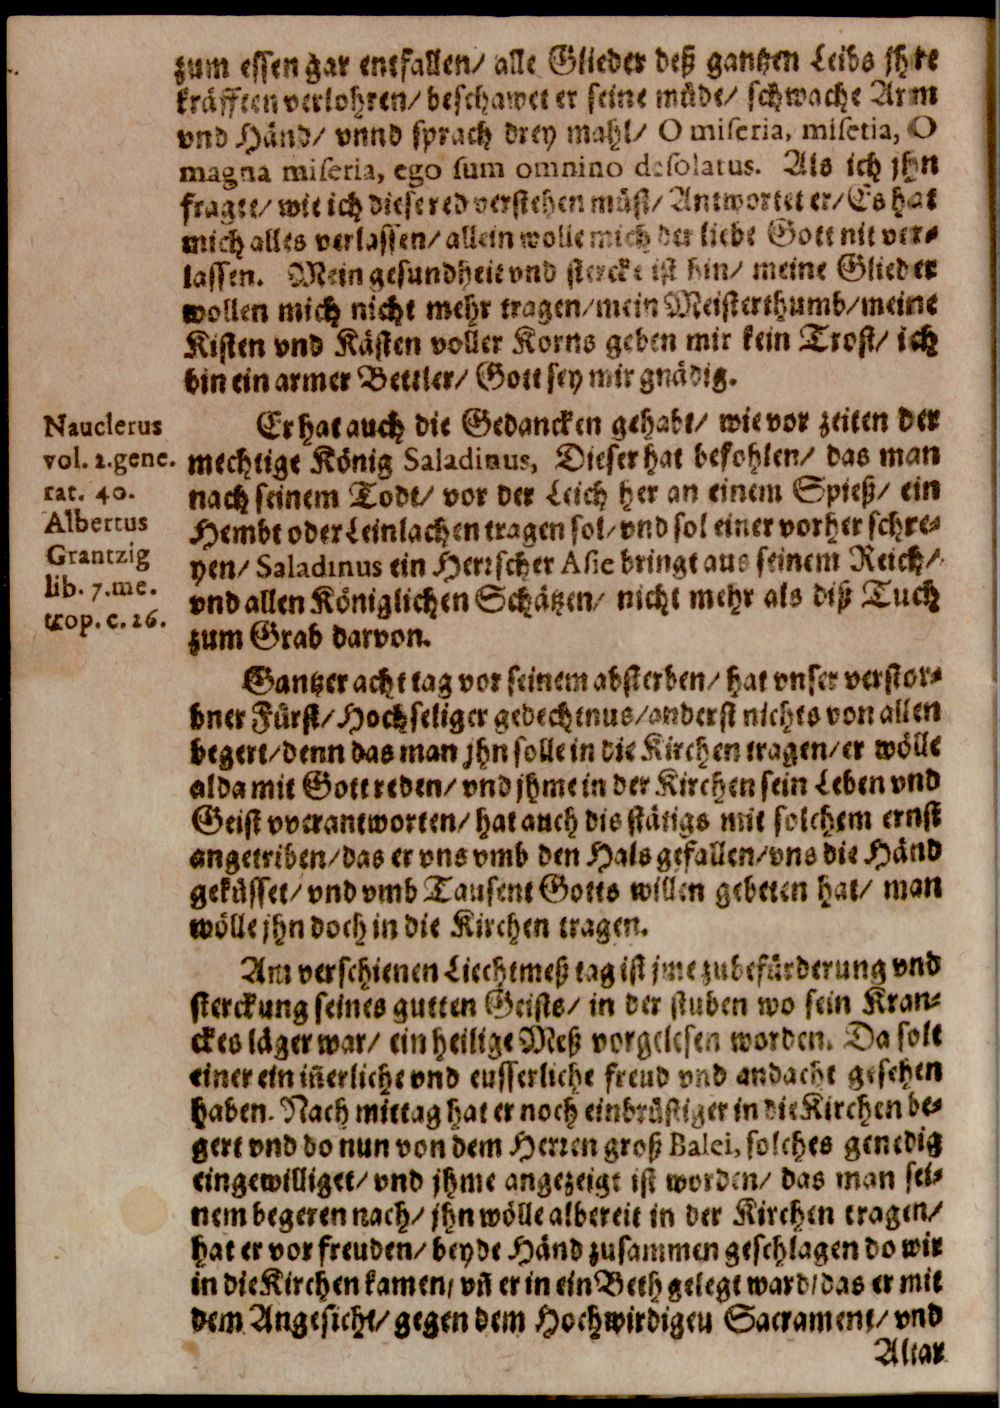 zum essen gar entfallen/ alle Glieder deß gantzen Leibs jhre
kräfften verlohren/ beschawet er seine müde/ schwache Arm
vnd Händ/ vnnd sprach drey mahl/ O miseria, miseria, O
magna miseria, ego sum omnino desolatus. Als ich jhn
fragte/ wie ich diese red verstehen müst/ Antwortet er/ Es hat
mich alles verlassen/ allein wolle mich der liebe Gott nit ver-
lassen. Mein gesundheit vnd stercke ist hin/ meine Glieder
wollen mich nicht mehr tragen/ mein Meisterthumb/ meine
Kisten vnd Kästen voller Korns geben mir kein Trost/ ich
bin ein armer Bettler/ Gott sey mir gnädig.
Er hat auch die Gedancken gehabt/ wie vor zeiten der
mechtige König Saladinus, Dieser hat befohlen/ das man
nach seinem Todt/ vor der Leich her an einem Spieß/ ein
Hembt oder Leinlachen tragen sol/ vnd sol einer vorher schre-
yen/ Saladinus ein Herrscher Asie bringt aus seinem Reich/
vnd allen Königlichen Schätzen/ nicht mehr als diß Tuch
zum Grab darvon.
Nauclerus
vol. 2. gene.
rat. 40.
Albertus
Grantzig
lib. 7. me.
trop. c. 16.
Gantzer acht tag vor seinem absterben/ hat vnser verstor-
bner Fürst/ Hochseliger gedechtnus/ anderst nichts von allen
begert/ denn das man jhn solle in die Kirchen tragen/ er wölle
alda mit Gott reden/ vnd jhme in der Kirchen sein Leben vnd
Geist vverantworten/ hat auch dis stätigs mit solchem ernst
angetriben/ das er vns vmb den Hals gefallen/ vns die Händ
geküsset/ vnd vmb Tausent Gotts willen gebeten hat/ man
wölle jhn doch in die Kirchen tragen.
Am verschienen Liechtmeß tag ist jme zu befürderung vnd
sterckung seines gutten Geists/ in der stuben wo sein Kran-
ckes läger war/ ein heilige Meß vorgelesen worden. Da solt
einer ein iñerliche vnd eusserliche freud vnd andacht gesehen
haben. Nach mittag hat er noch einbrüstiger in die Kirchen be-
gert vnd do nun von dem Herren groß Balei, solches genedig
eingewilliget/ vnd jhme angezeigt ist worden/ das man sei-
nem begeren nach/ jhn wölle albereit in der Kirchen tragen/
hat er vor freuden/ beyde Händ zusammen geschlagen do wir
in die Kirchen kamen/ vñ er in ein Beth gelegt ward/ das er mit
dem Angesicht/ gegen dem Hochwirdigen Sacrament/ vnd
Altar